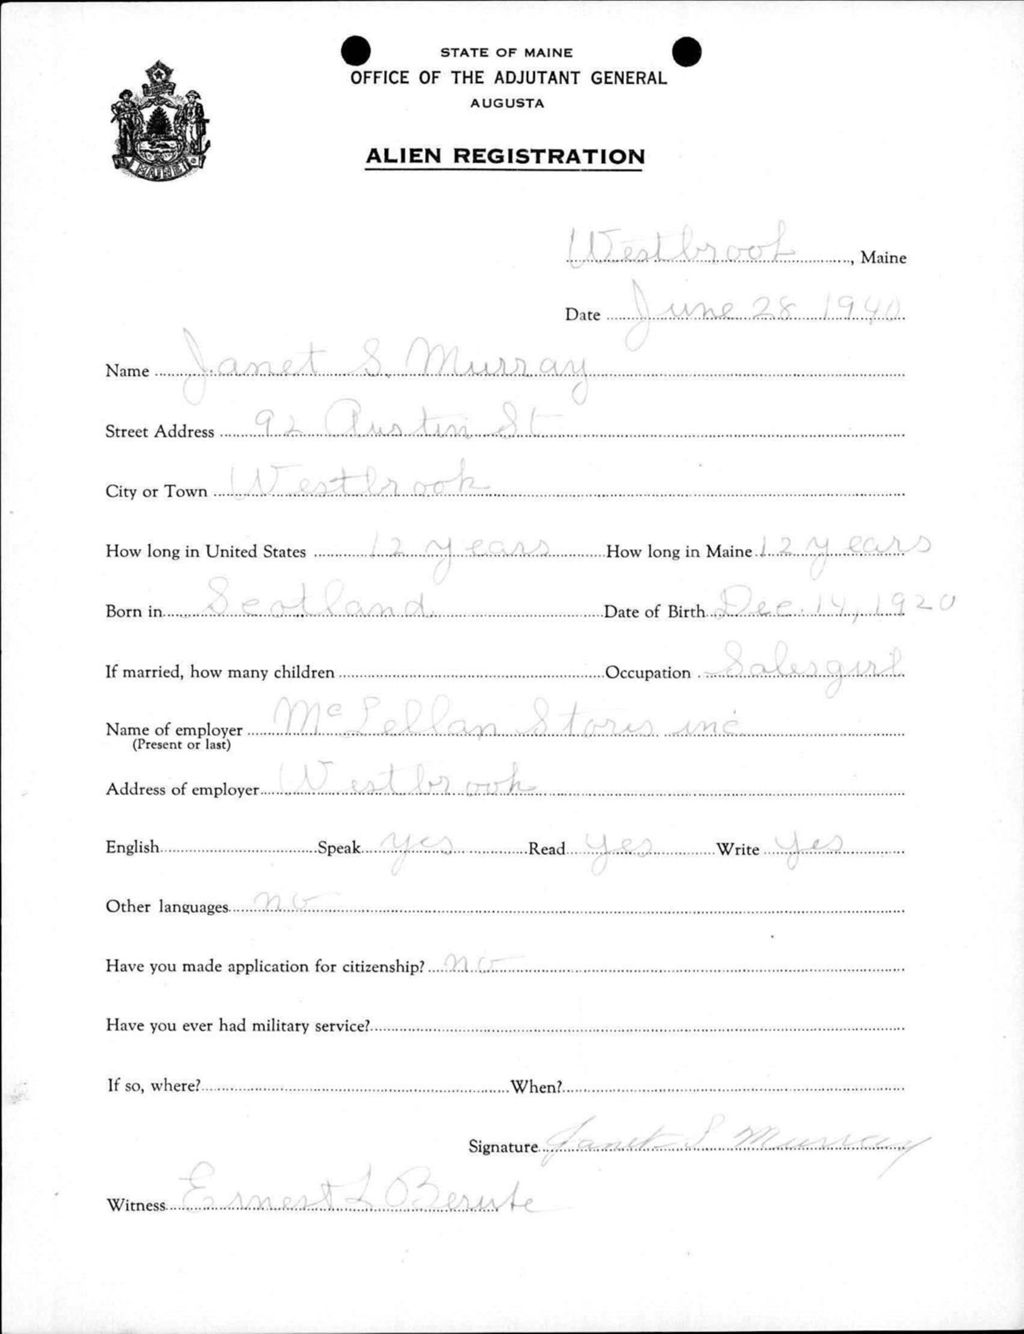 STATE OF MAINE
OFFICE OF THE ADJUTANT GENERAL
AUGUSTA
ALIEN REGISTRATION
MAINE
Westbrook, Maine
Date June 28 1940
Name Janet S. Murray
Street Address 92 Austin St
City or Town Westbrook
How long in United States 12 years How long in Maine 12 years
Born in Scotland Date of Birth Dec. 14, 1920
If married, how many children Occupation Salesgirl
Name of employer McLellan Stores inc
(Present or last)
Address of employer Westbrook
English Speak yes Read yes Write yes
Other languages no
Have you made application for citizenship? no
Have you ever had military service?
If so, where? When?
Signature Janet S Murray
Witness Ernest L